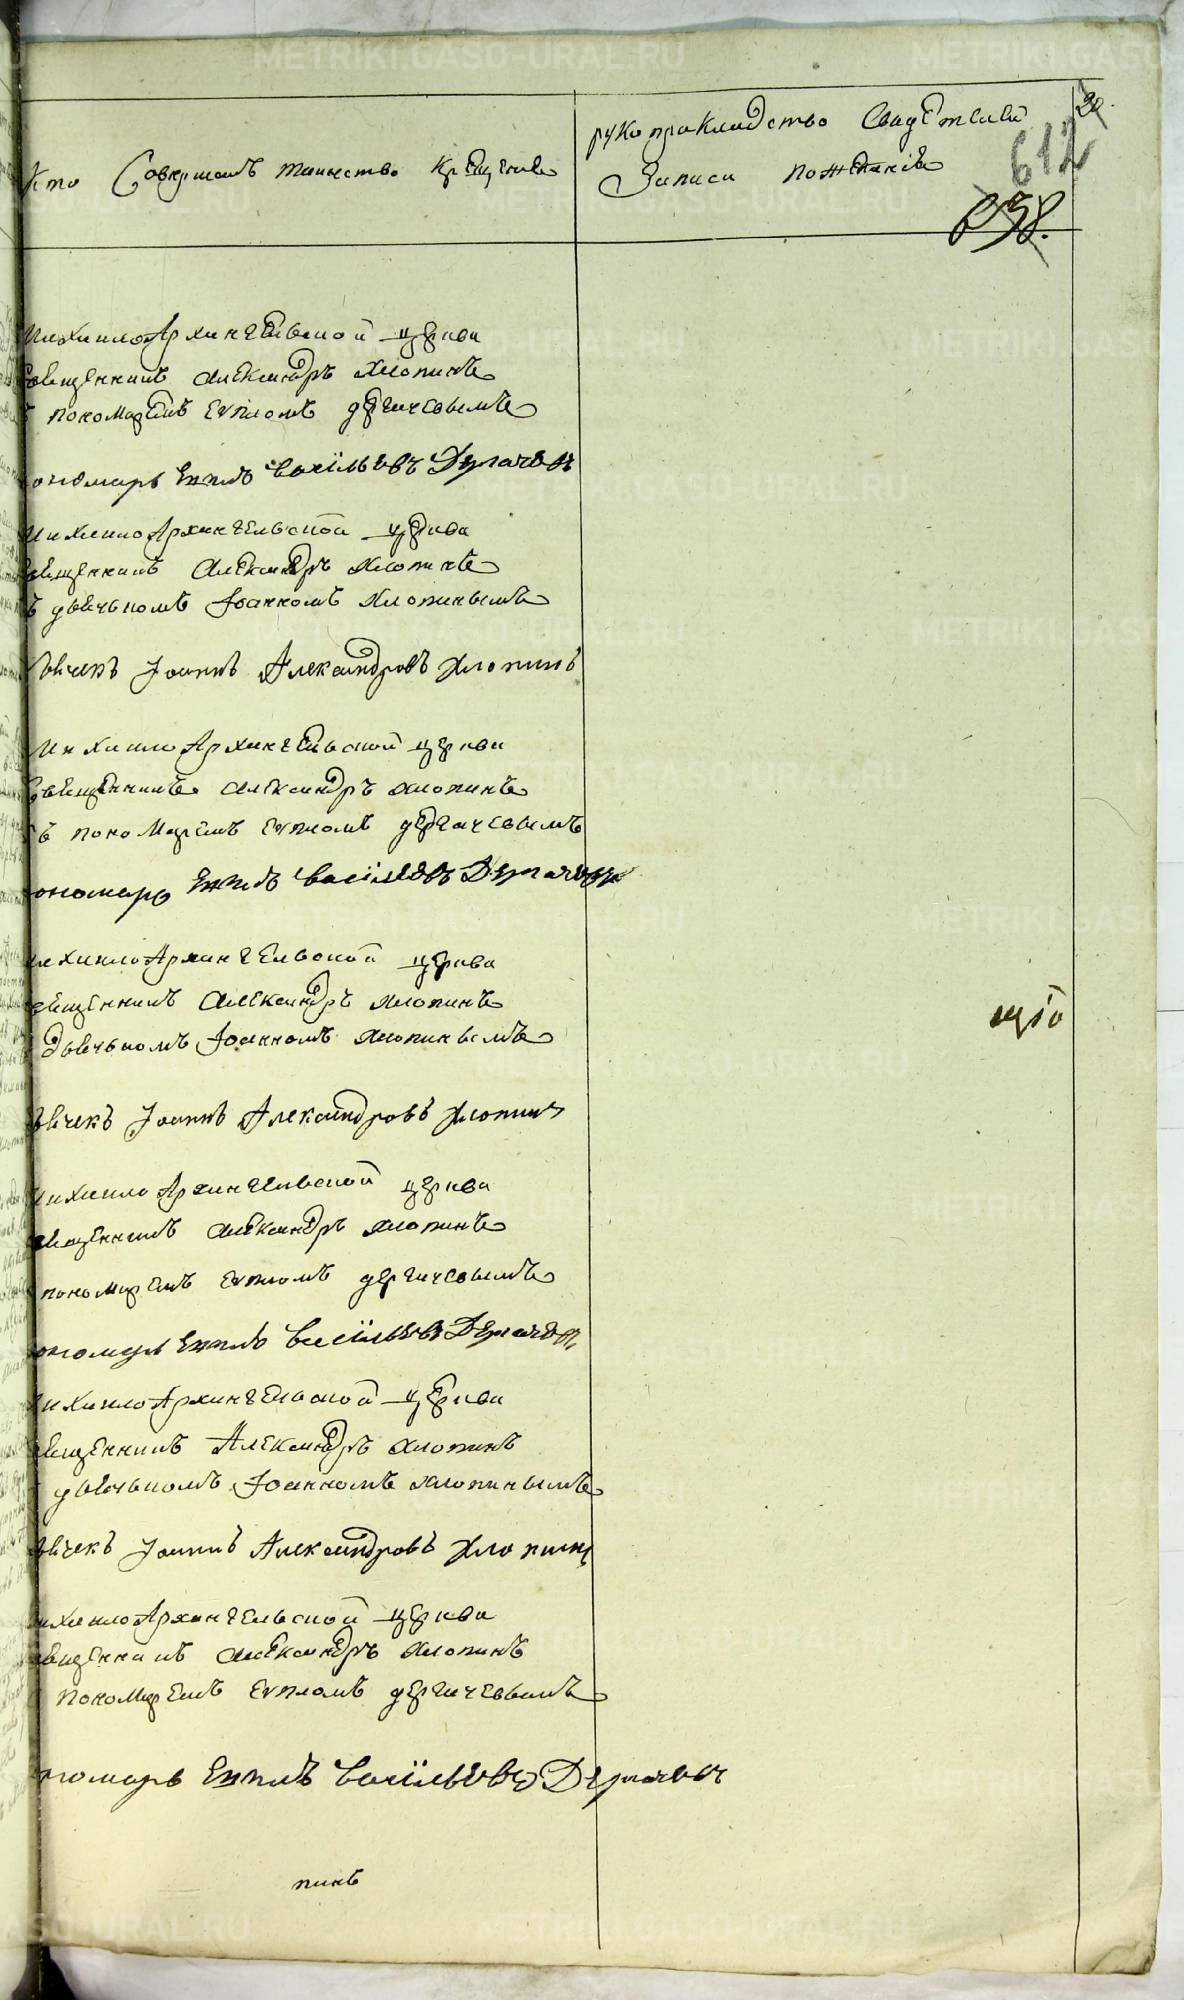 Кто Совершалъ таинство Крещенія
рукоприкладство Свидѣтелей
Записи по желанію
20.
612
658.
МихаилоАрхангельской церкви
священникъ Александръ Хлопинъ
съ пономаремъ Еѵпломъ Дергачевымъ
пономарь Еѵплъ Васїльевъ Дергачевъ
МихаилоАрхангельской церкви
священникъ Александръ Хлопинъ
съ дьячькомъ Іоанномъ Хлопинымъ
дьячекъ Іоаннъ Александровъ Хлопинъ
МихаилоАрхангельской церкви
священникъ Александръ Хлопинъ
съ пономаремъ Еѵпломъ Дергачевымъ
пономарь Еѵплъ Васїльевъ Дергачевъ
МихаилоАрхангельской церкви
священникъ Александръ Хлопинъ
дьячькомъ Іоанномъ Хлопинымъ
дьячекъ Іоаннъ Александровъ Хлопинъ
МихаилоАрхангельской церкви
священникъ Александръ Хлопинъ
пономаремъ Еѵпломъ Дергачевымъ
пономарь Еѵплъ Васїльевъ Дергачевъ
МихаилоАрхангельской церкви
священникъ Александръ Хлопинъ
дьячькомъ Іоанномъ Хлопинымъ
дьячекъ Іоаннъ Александровъ Хлопинъ
МихаилоАрхангельской церкви
священникъ Александръ Хлопинъ
пономаремъ Еѵпломъ Дергачевымъ
пономарь Еѵплъ Васїльевъ Дергачевъ
пинъ
METRIKI.GASO-URAL.RU